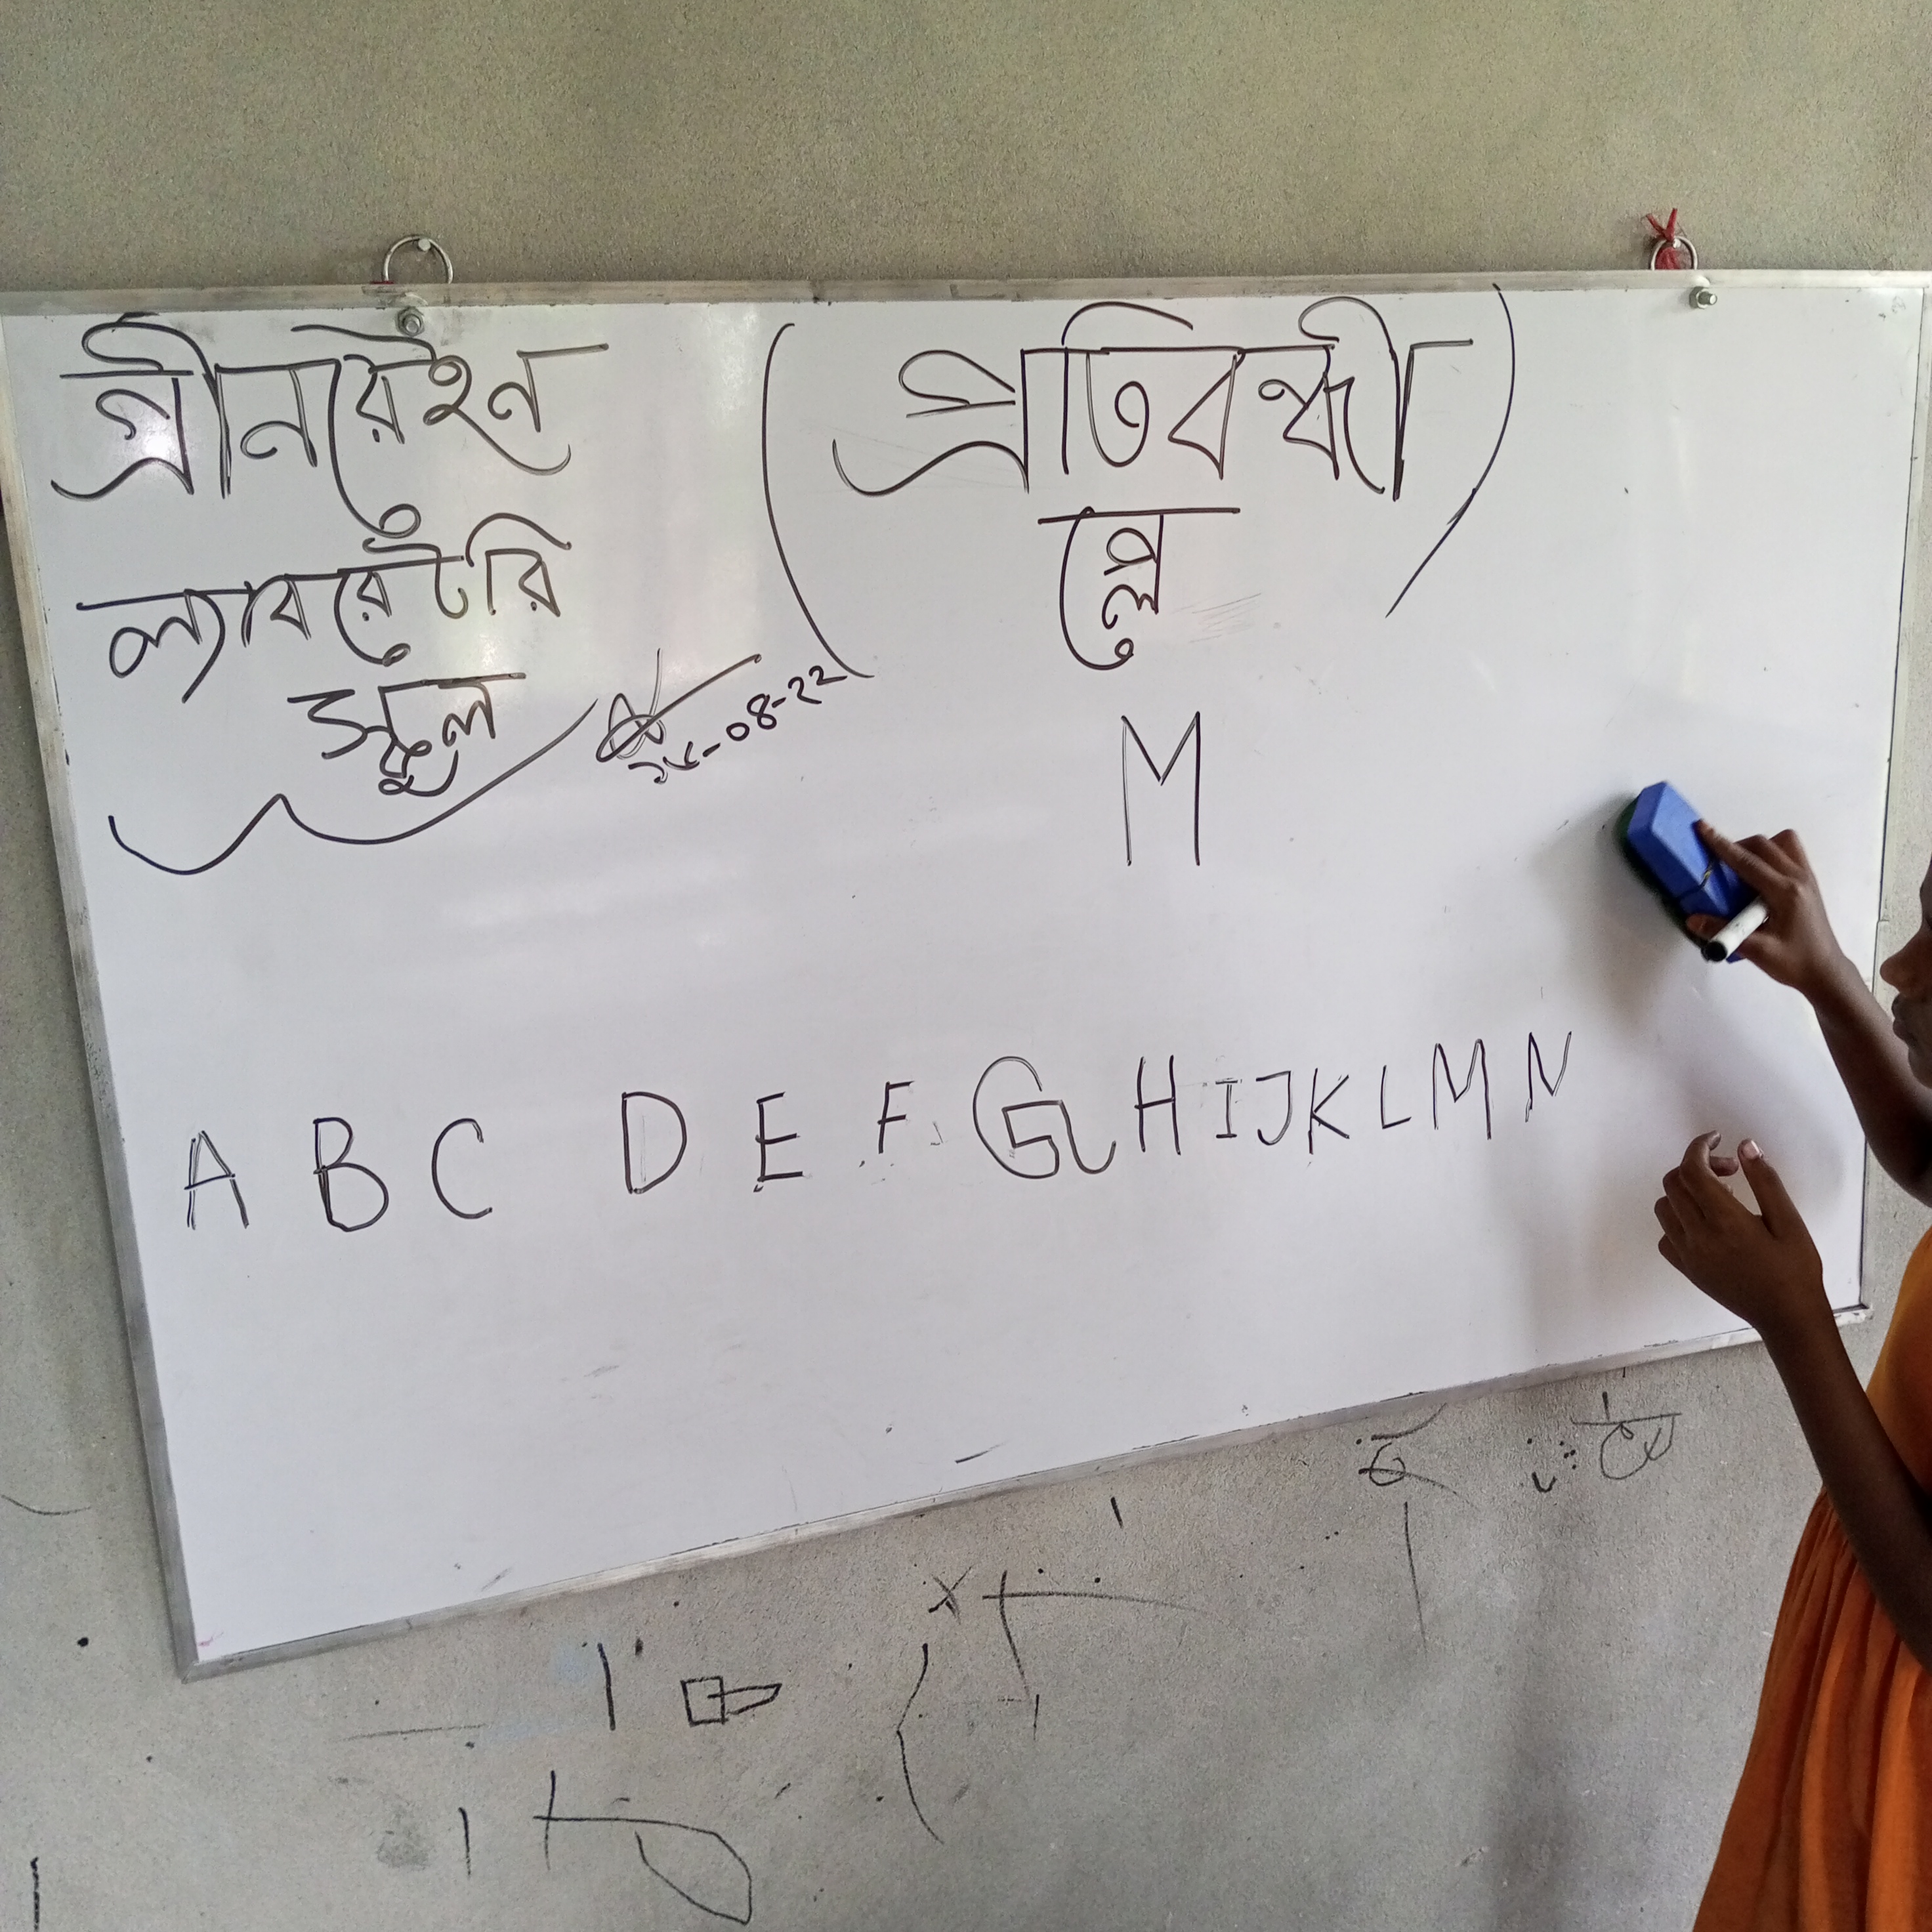 গ্রীনরেইন
ল্যাবরেটরি
স্কুল
(প্রতিবন্ধী)
প্লে
M
A B C D E F G H I J K L M N